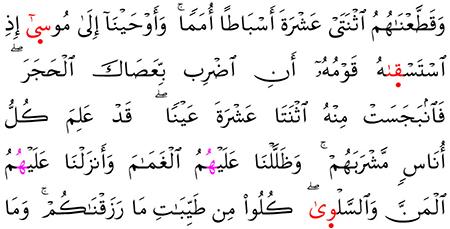 وَقَطَّعۡنَٰهُمُ ٱثۡنَتَىۡ عَشۡرَةَ أَسۡبَاطًا أُمَمًاۚ وَأَوۡحَيۡنَآ إِلَىٰ مُوسَىٰٓ إِذِ
ٱسۡتَسۡقَىٰهُ قَوۡمُهُۥٓ أَنِ ٱضۡرِب بِّعَصَاكَ ٱلۡحَجَرَۖ
فَٱنۢبَجَسَتۡ مِنۡهُ ٱثۡنَتَا عَشۡرَةَ عَيۡنًاۖ قَدۡ عَلِمَ كُلُّ
أُنَاسٖ مَّشۡرَبَهُمۡۚ وَظَلَّلۡنَا عَلَيۡهُمُ ٱلۡغَمَٰمَ وَأَنزَلۡنَا عَلَيۡهُمُ
ٱلۡمَنَّ وَٱلسَّلۡوَىٰۖ كُلُواْ مِن طَيِّبَٰتِ مَا رَزَقۡنَٰكُمۡۚ وَمَا